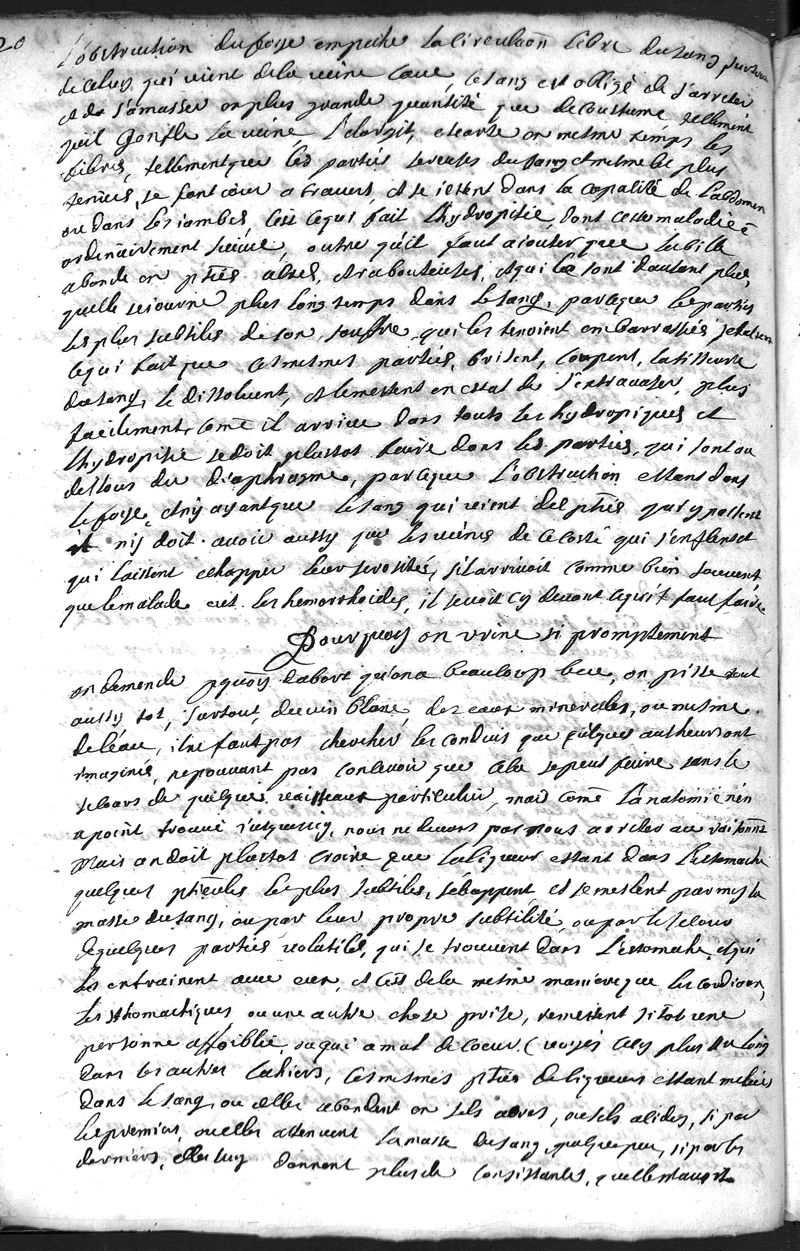 20
L'obstruction du foye empeche la circulaõn libre du sang surtout
de celuy qui vient de la veine cave, le sang est obligé de s'arreter
et de s'amasser en plus grande quantité que de coustume tellement
qu'il gonfle la veine l'elargit, ecarte en mesme temps les
fibres, tellement que les parties sereuses du sang et mesme les plus
tenües, se font iour a travers, et se iettent dans la capasité de l'abdomen
ou dans les iambes, c'est ce qui fait l'hydropisie, dont cette maladie ẽ
ordinairement suivie, outre qu'il faut aiouter que la bile
abonde en pties acres, et raboteuses, et qui les sont d'autant plus,
quelle seiourne plus long temps dans le sang, parceque les parties
les plus subtiles de son souffre qui les tenoient embarrassées
ce qui fait que ces mesmes parties, brisent, coupent, la tissure
du sang, le dissoluent, et le mettent en estat de s'extravaser, plus
facilement, come il arrive dans touts les hydropiques et
l'hydropisie se doit plustot faire dans les parties, qui sont au
dessous du diaphragme, parceque l'obstruction estant dans
le foye, et n'y ayant que le sang qui vient des pties qui y portent
il n'y doit avoir aussy que les veines de ce costé qui s'enflent et
qui laissent echapper leur serosités, s'il arrivoit comme bien souvent,
que le malade eut les hemorrhoides, il seroit cy devant ce qu'il faut faire
Pourquoy on urine si promptement
on demende pquoy d'abort qu'on a beaucoup beu, on pisse tout
aussy tot, surtout, du vin blanc, des eaux minerales, ou mesme
de l'eau, il ne faut pas chercher les conduis que quelques autheurs ont
imaginés, ne pouvant pas concevoir que cela se peut faire sans le
secours de quelque vaisseaux particulier, mais come l'anatomie n'en
a point trouvé iusques icy, nous ne devons pas nous arreter au
Mais on doit plustot croire que la liqueur estant dans l'estomache
quelques pticules les plus subtiles, s'echappent et se meslent parmis la
masse du sang, ou par leur propre subtilité ou par le secours
de quelques parties volatiles, qui se trouvent dans l'estomache, et qui
les entrainent avec eux, et c'est de la mesme maniere que les cordiaux,
les sthomachiques ou une autre chose prise, remettent sitot une
personne affoiblie, ou qui a mal de coeur, (voyés cecy plus au long
dans les autres cahiers, ces mesmes pties de liqueurs estant melées
dans le sang, ou elles abondent en sels acres, ou sels acides, si par
les premiers, ou elles attenuent la masse du sang quelque peu, si par les
derniers, elles luy donnent plus de consistance, quelle n'avoit